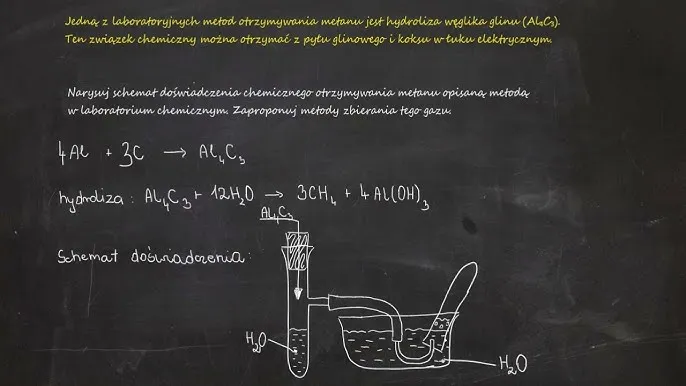 Jedną z laboratoryjnych metod otrzymywania metanu jest hydroliza węglika glinu (Al₄C₃).
Ten związek chemiczny można otrzymać z pyłu glinowego i koksu w łuku elektrycznym.
Narysuj schemat doświadczenia chemicznego otrzymywania metanu opisaną metodą
w laboratorium chemicznym. Zaproponuj metody zbierania tego gazu.
4Al + 3C → Al₄C₃
hydroliza: Al₄C₃ + 12H₂O → 3CH₄ + 4Al(OH)₃
Al₄C₃
Schemat doświadczenia:
H₂O
H₂O